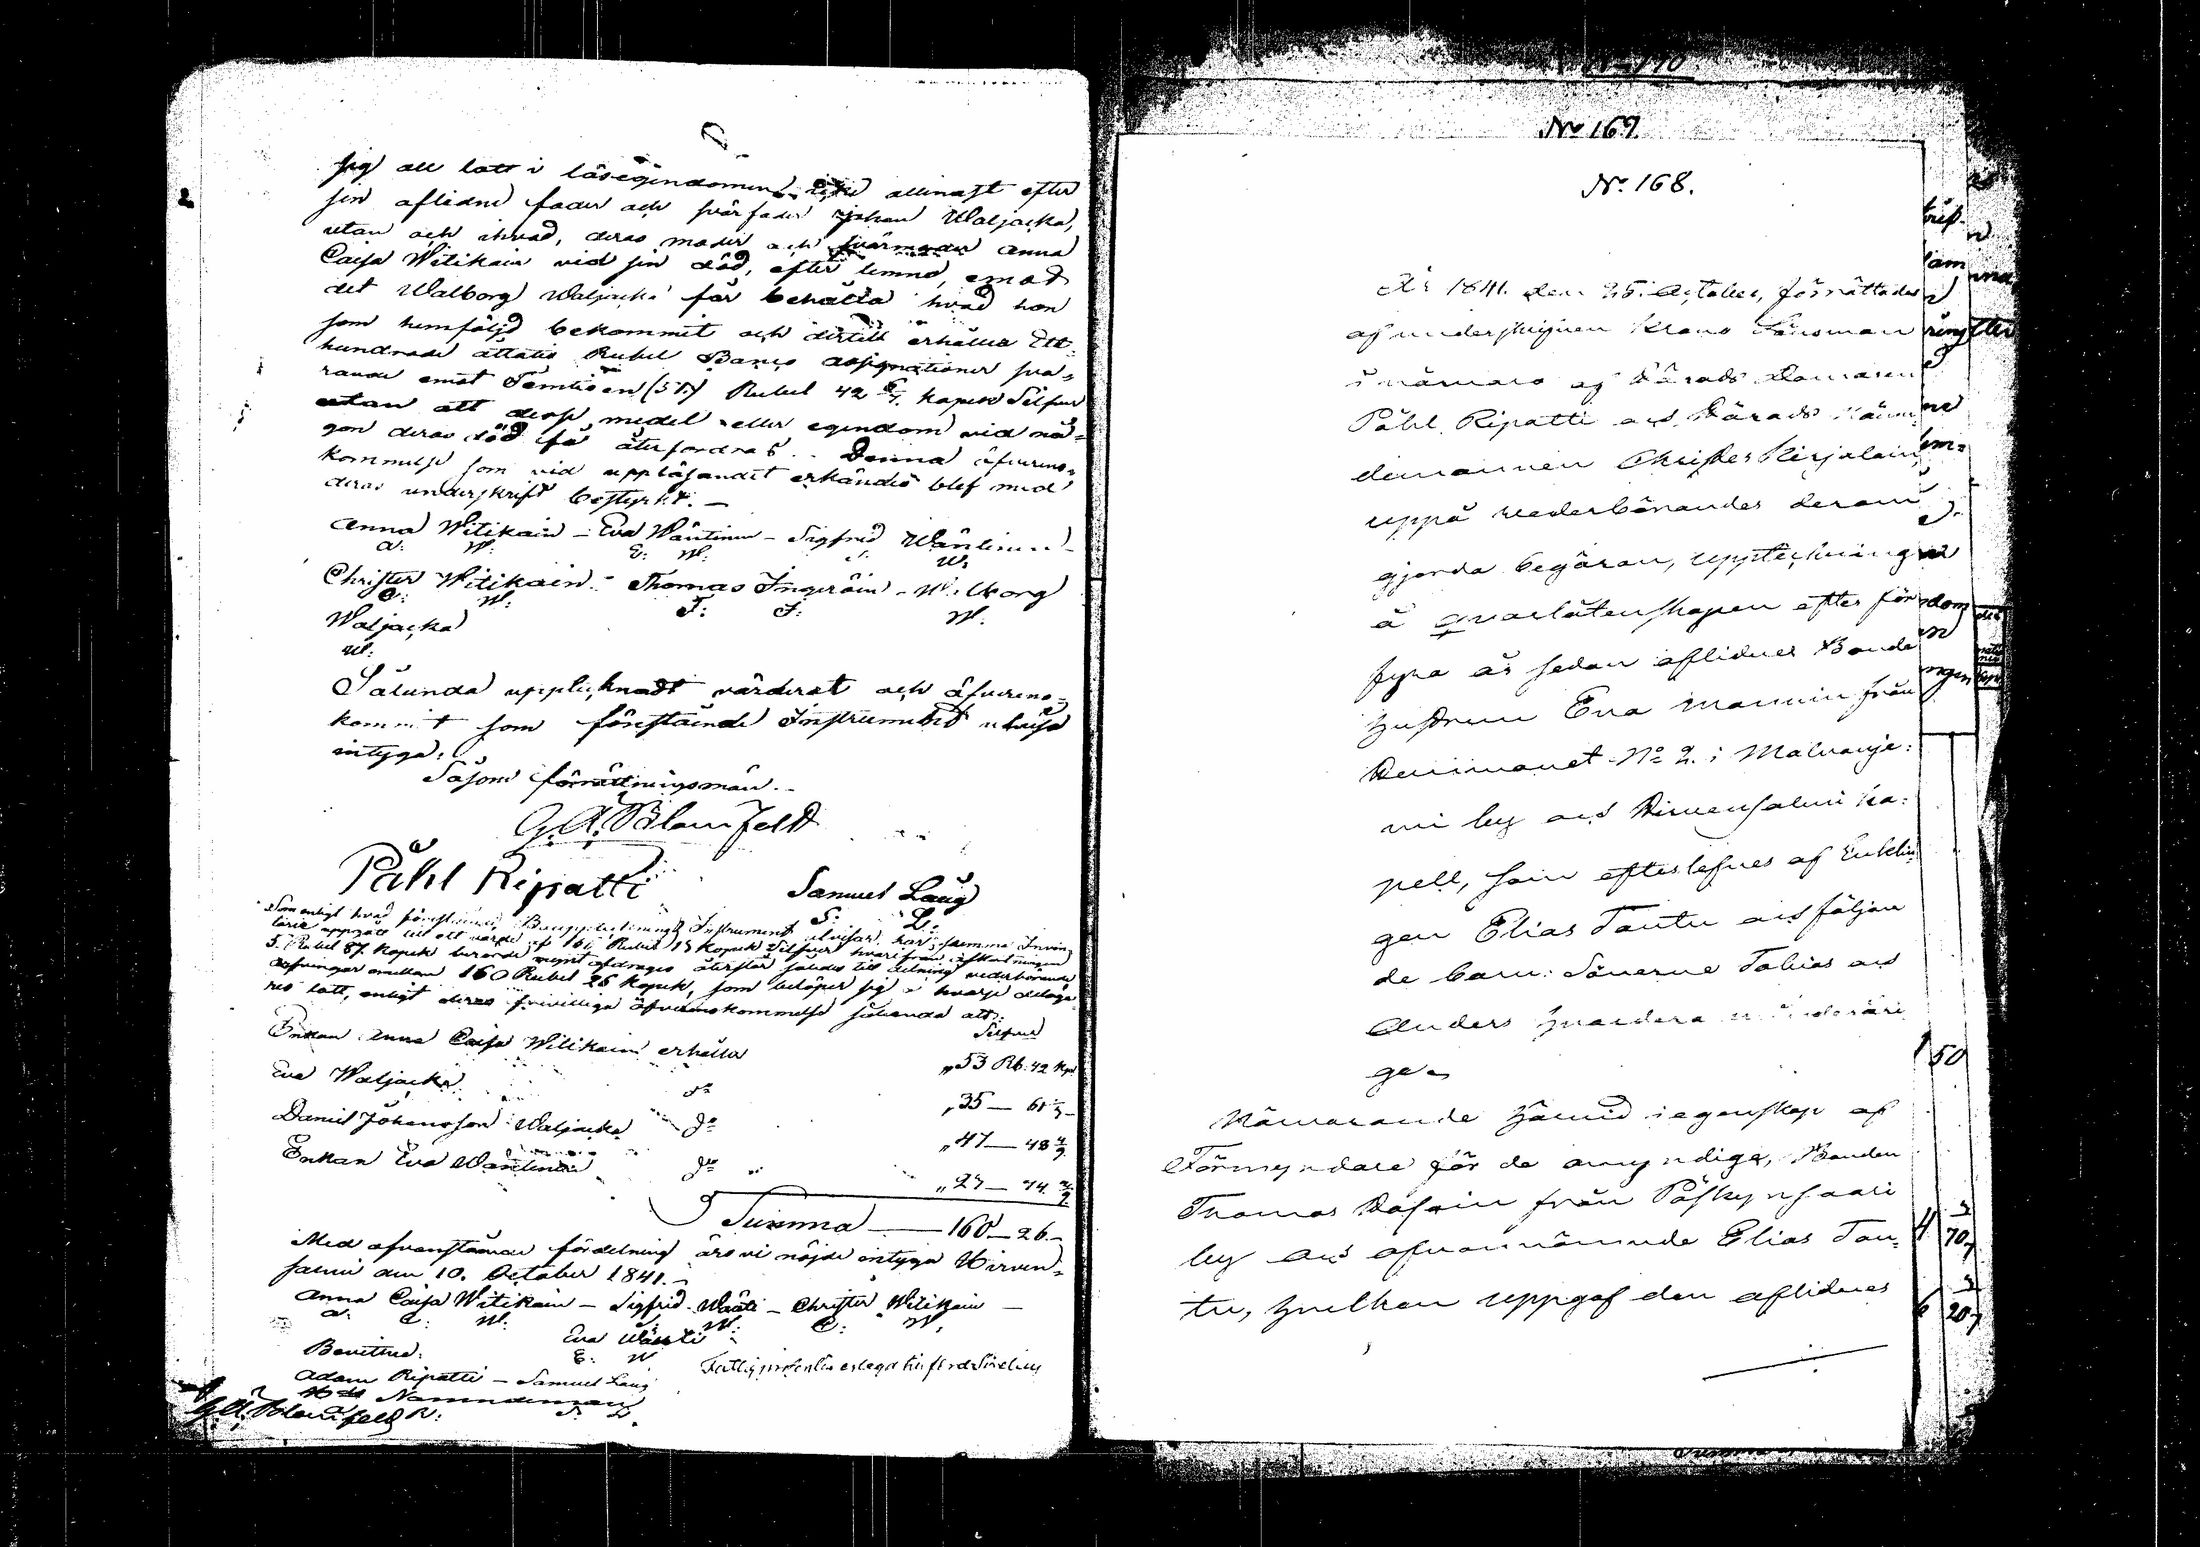 sig all lott i lösegendomen, icke allenast efter
sin aflidne fader och svärfader Johan Waljacka,
utan och ihvad, deras moder och svärmoder Anna
Caisa Witikain vid sin död, efter lemna, emot
det Walborg Waljacka får behålla hvad hon
som hemföljd bekommit och dertill erhåller Ett
hundrade åttatio Rubel Banco assignationer sva-
rande emot Femtioen (51.) Rubel 42 6/7. kopek Silfver
utan att desse medel eller egendom vid nå-
gon deras död få återfordras. Denna öfverens-
kommelse som vid uppläsandet erkändes blef med
deras underskrift bestyrkt. —
Anna Witikain — Eva Wäntinen — Sigfrid Wäntinen —
A: W: E: W: W:
Christer Witikain — Thomas Ingeröin — Walborg
C: W: T: I: W:
Waljacka
W:
Sålunda upptecknadt värderat och öfverens-
kommit som förestående Instrument utvisa
intyga.
Såsom förrättningsmän.
G. A. Blomfeldt
Påhl Ripatti
Samuel Laug
S: L:
Som enligt hvad förestående Bouppteckning Instrument utvisar, har samma Inven-
tarie uppgått till ett värde af 166 Rubel 13 kopek Silfver hvarifrån afkortningen
5. Rubel 87 kopek berörde mynt afdrages återstår således till delning vederbörande
arfvingar emellan 160 Rubel 26 kopek, som belöper sig i hvarje delaga-
res lott, enligt deras frivilliga öfverenskommelse sålunda att:
Silfver
Enkan Anna Caisa Witikain erhåller „53 Rb: 42 kop
Eva Waljacka do „35 — 61 —
Daniel Johansson Waljacka do „47 — 48
Enkan Eva Wäntinen do „23 — 74
Summa — 160 — 26 —
Med ofvanstående fördelning äro vi nöjde intyga Hirven-
salmi den 10. October 1841. —
Anna Caisa Witikain — Sigfrid Wääti — Christer Witikain —
A: C: W: S: W: C: W:
Eva Wääti
E: W
Bevittna:
Adam Ripatti — Samuel Laug
Nämndeman
G. A. Blomfeldt R: S: L.
No 170
No 169
No 168.
År 1841. den 25. October, förrättades
af underskrifven Krono Länsman
i närvaro af Härads Domaren
Påhl Ripatti och Härads Nämn-
demannen Christer Kirjalain,
uppå vederbörandes derom
gjorda begäran, uppteckning
å qvarlåtenskapen efter för
fyra år sedan aflidne Bonde
hustrun Eva Mannin från
Hemmanet No 2. i Malvanje-
mi by och Hirvensalmi Ka-
pell, som efterlefves af Enklin-
gen Elias Tantu och följan
de barn: Sönerne Tobias och
Anders hvardera minderåri
ge.
Närvarande härvid i egenskap af
Förmyndare för de omyndige, Bonden
Thomas Hasain från Påskynsaari
by och ofvannämnde Elias Tan-
tu, hvilken uppgaf den aflidnes
50
4 70
6 20